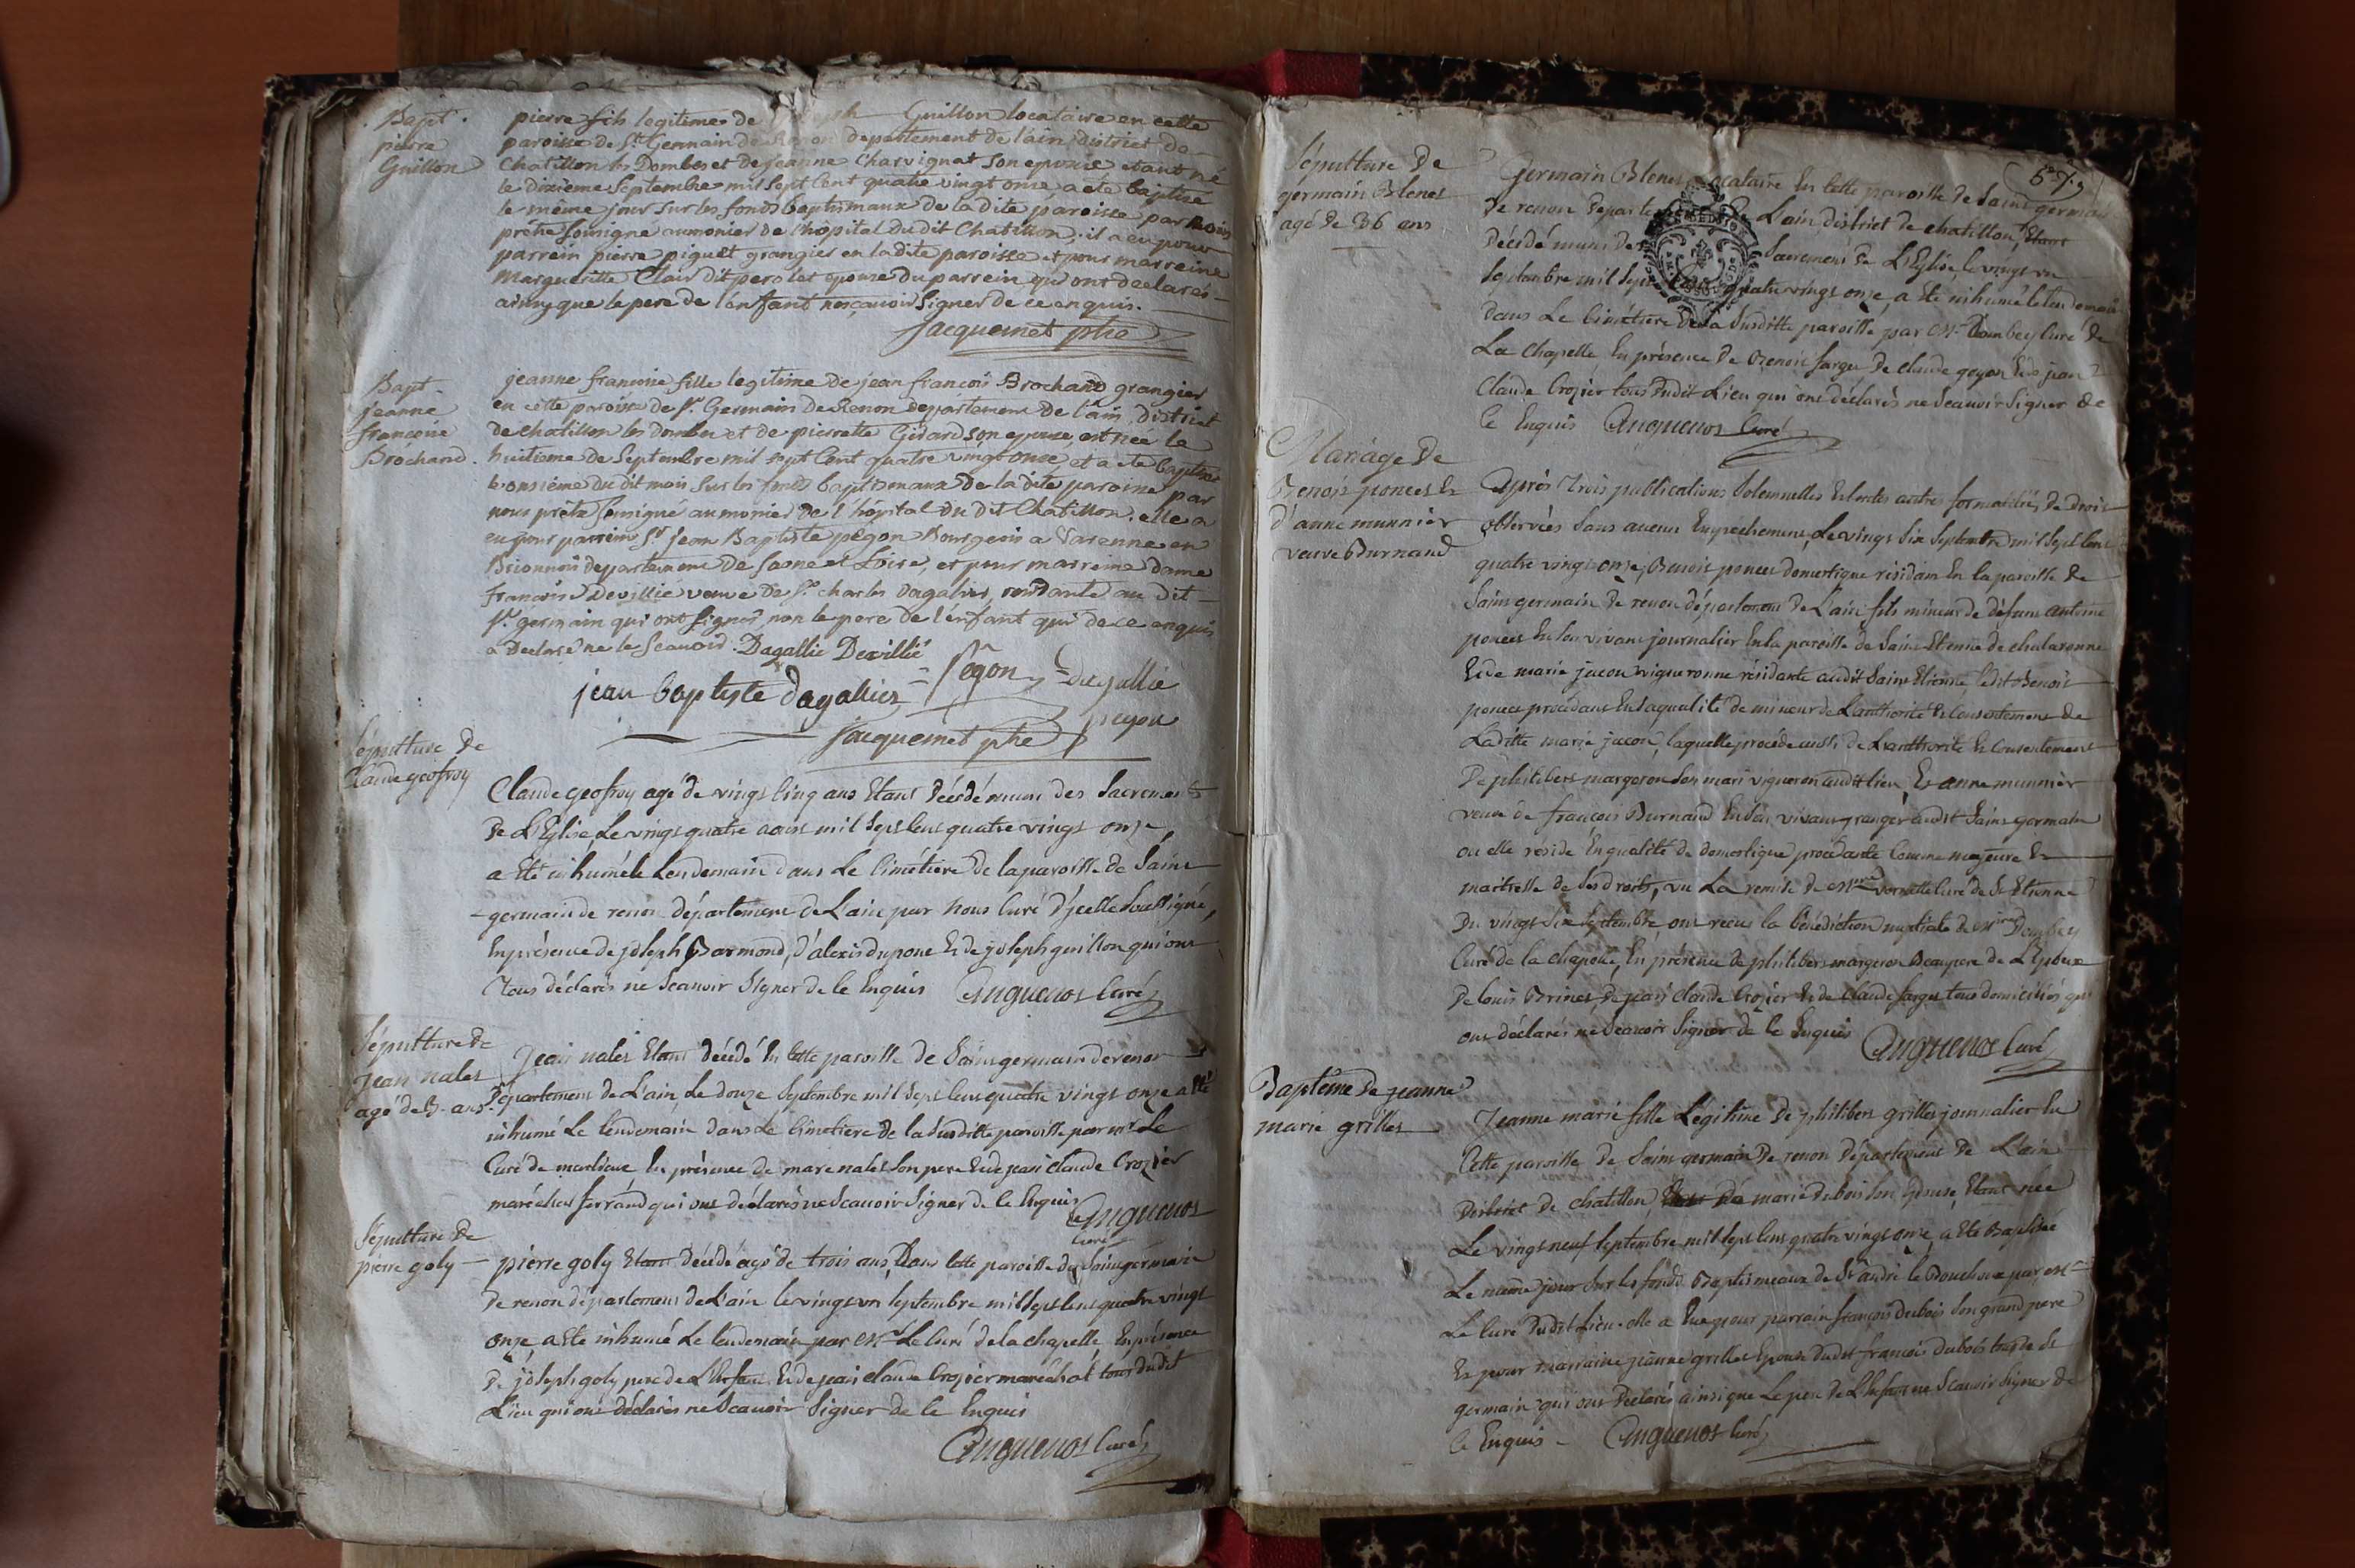 Bapt.
pierre
Guillon
pierre fils legitime de Guillon locataire en cette
paroisse de St. Germain de Renon departement de l'ain, district de
Chatillon les Dombes et de jeanne Charvignat son epouse etant né
le dixieme Septembre mil sept Cent quatre vingt onze a eté baptisé
le même jour sur les fonds baptismaux de la dite paroisse par nous
prêtre soussigné aumonier de l'hopital du dit Chatillon, il a eu pour
parrein pierre piquet grangier en la dite paroisse et pour marreine
Margueritte Clair dit epouse du parrein qui ont declarés
ainsy que le pere de l'enfant ne sçauoir signer de ce enquis.
Jacquemet ptre
Bapt
jeanne
francoise
Brochand.
jeanne francoise fille legitime de jean francois Brochand grangier
en cette paroisse de St. Germain De Renon departement De l'ain, district
de chatillon les dombes et de pierrette Girard son epouse, est née le
huitieme de Septembre mil sept Cent quatre vingt onze, et a ete baptisée
le onzième du dit mois sur les fonds baptismaux De la dite paroisse par
nous prêtre soussigné aumonier De l'hôpital du dit Chatillon. elle a
eu pour parrein Sr. jean Baptiste pegon Bourgeois a Varenne en
Brionnois departement De Saone et Loire, et pour marreine dame
francoise Devillié veuve de Sr. charles dagalier, residante au dit
St. germain qui ont signés, non le pere de l'enfant qui de ce enquis
a Declaré ne le Scauoir. Dagallie Devillié
pegon dagallie
jean baptiste dagallier
pegon
jacquemet ptre
Sépulture De
Claude geofroy
Claude geofroy agé de vingt Cinq ans Etant Décédé muni des Sacrements
De L'Eglise, Le vingt quatre aout mil Sept Cent quatre vingt onze
a Eté inhumé le Lendemain dans Le Cimétiere de la paroisse de Saint
germain de renon département de L'ain par Nous Curé D'jcelle Soussigné,
En présence de joseph Barmond, d'alexis dupont Et de joseph guillon qui ont
Tous déclarés ne Scauoir Signer de Ce Enquis Anguenot Curé
Sépulture De
Jean nales
agé de 3. ans.
Jean nales Etant décédé En Cette paroisse de Saint germain de renon
Département de L'ain, Le douze Septembre mil Sept Cent quatre vingt onze a Eté
inhumé Le lendemain dans Le Cimetiere de la Susditte paroisse par mr Le
Curé de marlieux, En présence de marc nales son pere Et de jean claude Crozier
maréchal ferrand qui ont déclarés ne Scauoir Signer de Ce Enquis
Anguenot
Curé
Sépulture De
pierre goly
pierre goly Etant décédé agé de trois ans, Dans Cette paroisse de Saint germain
De renon département de L'ain le vingt un Septembre mil Sept Cent quatre vingt
onze, a Eté inhumé Le lendemain par Mr Le Curé de la chapelle, En présence
De joseph goly pere de L'Enfant, Et de jean claude Crozier maréchal tous dudit
Lieu qui ont déclarés ne Scauoir Signer de Ce Enquis
Anguenot Curé
Sépulture De
germain Blenet
agé de 36 ans
57.
Germain Blenet Locataire En Cette paroisse de Saint germain
De renon Département de L'ain district de chatillon, Etant
Décédé muni des Sacrements De L'Eglise le vingt un
Septembre mil Sept Cent quatre vingt onze, a Eté inhumé le lendemain
Dans Le Cimétiere De la Susditte paroisse par Mr. Dombey Curé de
La chapelle, En présence De Benoit farge De claude goyon Et de jean
Claude Crozier tous Dudit Lieu qui ont déclarés ne Scauoir Signer de
Ce Enquis Anguenot Curé
Mariage De
Benoit poncet Et
d'anne munnier
veuve Burnand
Après Trois publications Solemnelles Et toutes autres formalités De Droit
observées Sans aucun Empêchement, Le vingt Six Septembre mil Sept Cent
quatre vingt onze, Benoit poncet domestique résidant En la paroisse de
Saint germain De renon département De L'ain fils mineur de défunt antoine
poncet En Son vivant journalier En la paroisse de Saint Etienne de chalaronne
Et de marie jacon vigneronne résidante audit Saint Etienne, Ledit Benoit
poncet procédant En Sa qualité de mineur de L'authorité Et Consentement de
Laditte marie jacon, laquelle procede aussi de L'authorité Et Consentement
De philibert margeron Son mari vigneron audit lieu, Et anne munnier
veuve de françois Burnand En Son vivant granger audit Saint germain
ou elle réside En qualité de domestique procédante Comme majeure Et
maitresse de Ses droits, vu La remise de Mre vernette Curé de St Etienne
Du vingt Six Septembre, ont recus la bénédiction nuptiale de Mre Dombey
Curé de la chapelle, En présence De philibert margeron Beaupere de L'Epoux
De louis Brinet, De jean claude Crozier Et de claude farges tous domiciliés qui
ont déclarés ne Scauoir Signer de Ce Enquis Anguenot Curé
Baptême De jeanne
marie grilles
Jeanne marie fille Légitime De philibert grilles journalier En
Cette paroisse de Saint germain De renon Département De L'ain
District de chatillon, De marie dubois Son Epouse, Etant née
Le vingt neuf Septembre mil Sept Cent quatre vingt onze, a Eté Baptisée
Le même jour Sur les fonds Baptismeaux de St andré le Bouchoux par Mr
Le Curé Dudit Lieu. elle a Eue pour parrain françois Dubois Son grand pere
Et pour marraine jeanne grilles Epouse Dudit francois dubois de St
germain qui ont Déclarés ainsi que Le pere de L'Enfant ne Scauoir Signer de
Ce Enquis Anguenot Curé